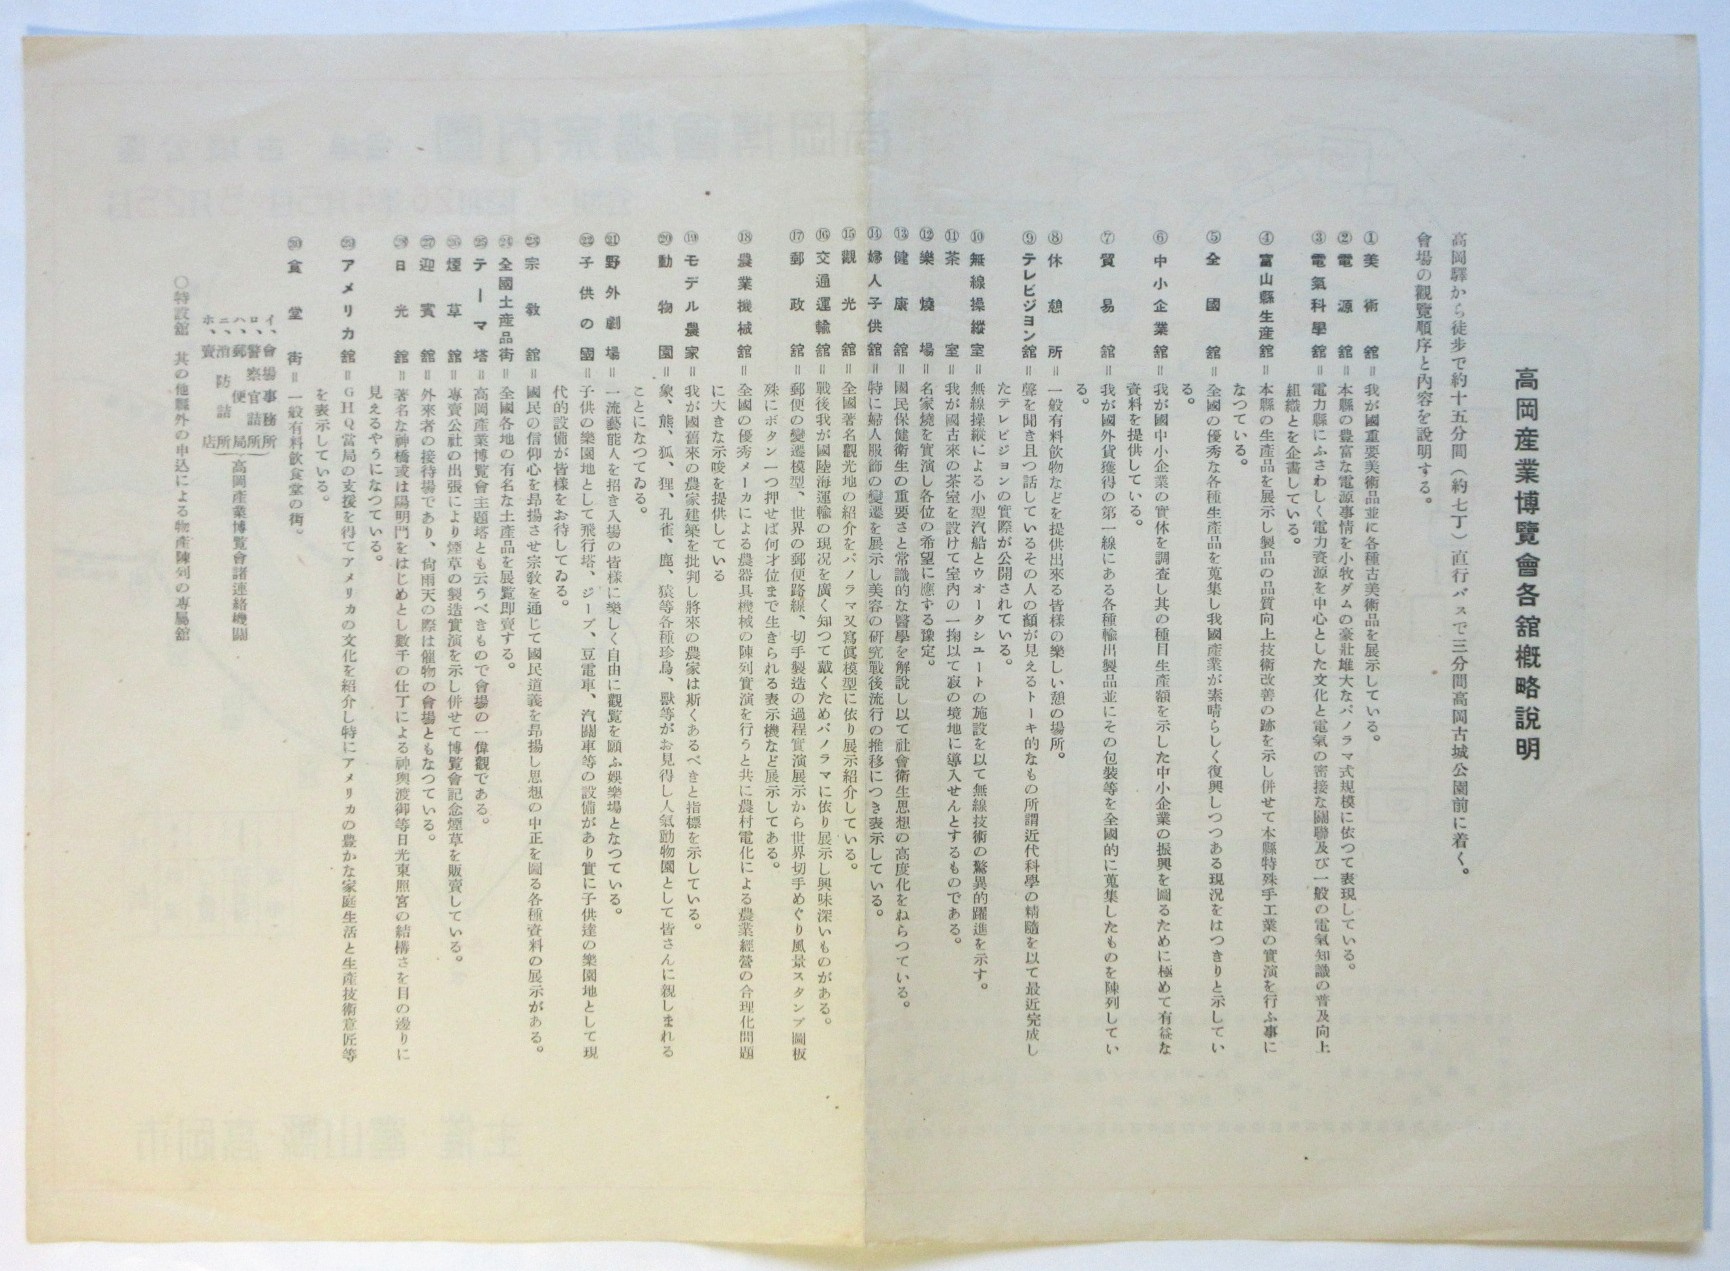 高岡産業博覽會各舘槪略說明
高岡驛から徒步で約十五分間（約七丁）直行バスで三分間高岡古城公園前に着く。
會場の觀覽順序と內容を說明する。
①美術舘＝我が國重要美術品並に各種古美術品を展示している。
②電源舘＝本縣の豊富な電源事情を小牧ダムの豪壯雄大なパノラマ式規模に依つて表現している。
③電氣科學舘＝電力縣にふさわしく電力資源を中心とした文化と電氣の密接な關聯及び一般の電氣知識の普及向上
組織とを企書している。
④富山縣生産舘＝本縣の生產品を展示し製品の品質向上技術改善の跡を示し併せて本縣特殊手工業の實演を行ふ事に
なつている。
⑤全國舘＝全國の優秀な各種生產品を蒐集し我國產業が素晴らしく復興しつつある現況をはつきりと示してい
る。
⑥中小企業舘＝我が國中小企業の實体を調査し其の種目生產額を示した中小企業の振興を圖るために極めて有益な
資料を提供している。
⑦貿易舘＝我が國外貨獲得の第一線にある各種輸出製品並にその包裝等を全國的に蒐集したものを陳列してい
る。
⑧休憩所＝一般有料飲物などを提供出來る皆樣の樂しい憩の場所。
⑨テレビジヨン舘＝聲を聞き且つ話しているその人の顏が見えるトーキ的なもの所謂近代科學の精隨を以て最近完成し
たテレビジヨンの實際が公開されている。
⑩無線操縱室＝無線操縱による小型汽船とウオータシユートの施設を以て無線技術の驚異的躍進を示す。
⑪茶室＝我が國古來の茶室を設けて室內の一掬以て寂の境地に導入せんとするものである。
⑫樂燒場＝名家燒を實演し各位の希望に應ずる豫定。
⑬健康舘＝國民保健衛生の重要さと常識的な醫學を解說し以て社會衛生思想の高度化をねらつている。
⑭婦人子供舘＝特に婦人服飾の變遷を展示し美容の研究戰後流行の推移につき表示している。
⑮觀光舘＝全國著名觀光地の紹介をパノラマ又寫眞模型に依り展示紹介している。
⑯交通運輸舘＝戰後我が國陸海運輸の現況を廣く知つて戴くためパノラマに依り展示し興味深いものがある。
⑰郵政舘＝郵便の變遷模型、世界の郵便路線、切手製造の過程實演展示から世界切手めぐり風景スタンプ圖板
殊にボタン一つ押せば何才位まで生きられる表示機など展示してある。
⑱農業機械舘＝全國の優秀メーカによる農器具機械の陳列實演を行うと共に農村電化による農業經營の合理化問題
に大きな示唆を提供している
⑲モデル農家＝我が國舊來の農家建築を批判し將來の農家は斯くあるべきと指標を示している。
⑳動物園＝象、熊、狐、狸、孔雀、鹿、猿等各種珍鳥、獸等がお見得し人氣動物園として皆さんに親しまれる
ことになつてゐる。
㉑野外劇場＝一流藝能人を招き入場の皆樣に樂しく自由に觀覽を願ふ娛樂場となつている。
㉒子供の國＝子供の樂園地として飛行塔、ジープ、豆電車、汽關車等の設備があり實に子供達の樂園地として現
代的設備が皆樣をお待してゐる。
㉓宗敎舘＝國民の信仰心を昂揚させ宗敎を通じて國民道義を昂揚し思想の中正を圖る各種資料の展示がある。
㉔全國土産品街＝全國各地の有名な土產品を展覽卽賣する。
㉕テーマ塔＝高岡產業博覽會主題塔とも云うべきもので會場の一偉觀である。
㉖煙草舘＝專賣公社の出張により煙草の製造實演を示し併せて博覽會記念煙草を販賣している。
㉗迎賓舘＝外來者の接待場であり、尙雨天の際は催物の會場ともなつている。
㉘日光舘＝著名な神橋或は陽明門をはじめとし數千の仕丁による神輿渡御等日光東照宮の結構さを目の邊りに
見えるやうになつている。
㉙アメリカ舘＝GHQ當局の支援を得てアメリカの文化を紹介し特にアメリカの豊かな家庭生活と生產技術意匠等
を表示している。
㉚食堂街＝一般有料飲食堂の街。
イ、會場事務所
ロ、警察官詰所
ハ、郵便局
ニ、消防詰所
ホ、賣店
高岡產業博覽會諸連絡機關
〇特設舘　其の他縣外の申込による物產陳列の專屬舘